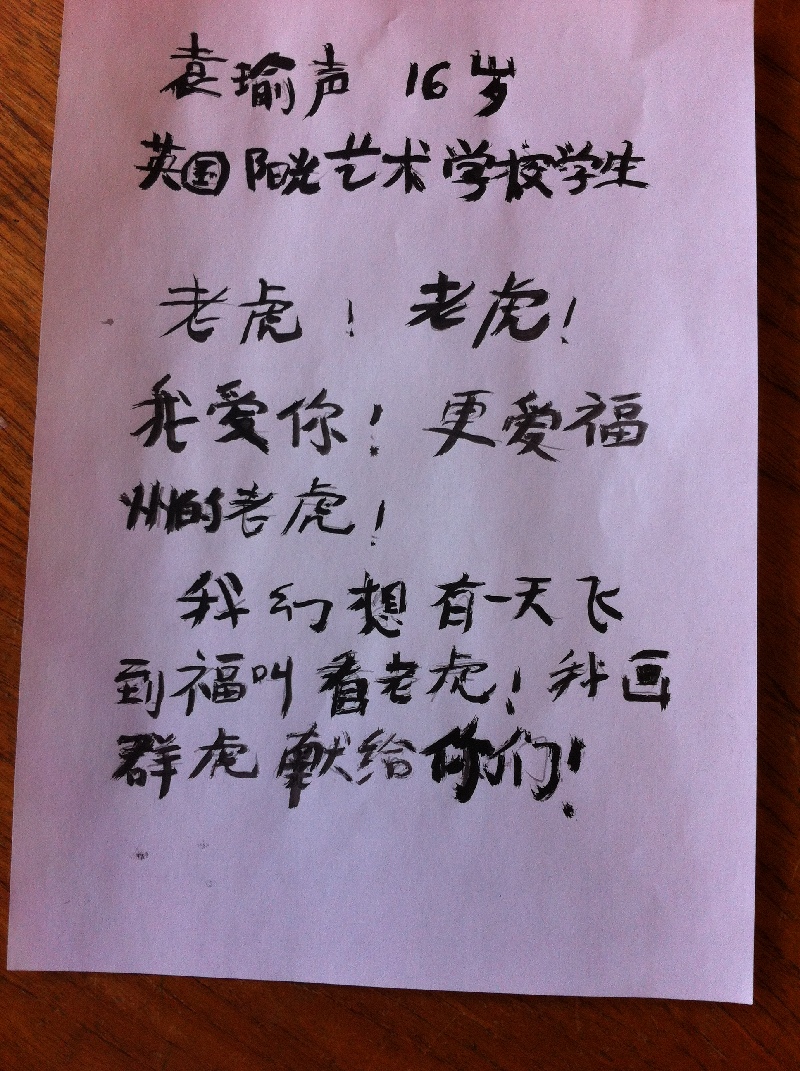 袁瑜声 16岁
英国阳光艺术学校学生
老虎！老虎！
我爱你！更爱福
州的老虎！
我幻想有一天飞
到福州看老虎！我画
群虎献给你们！